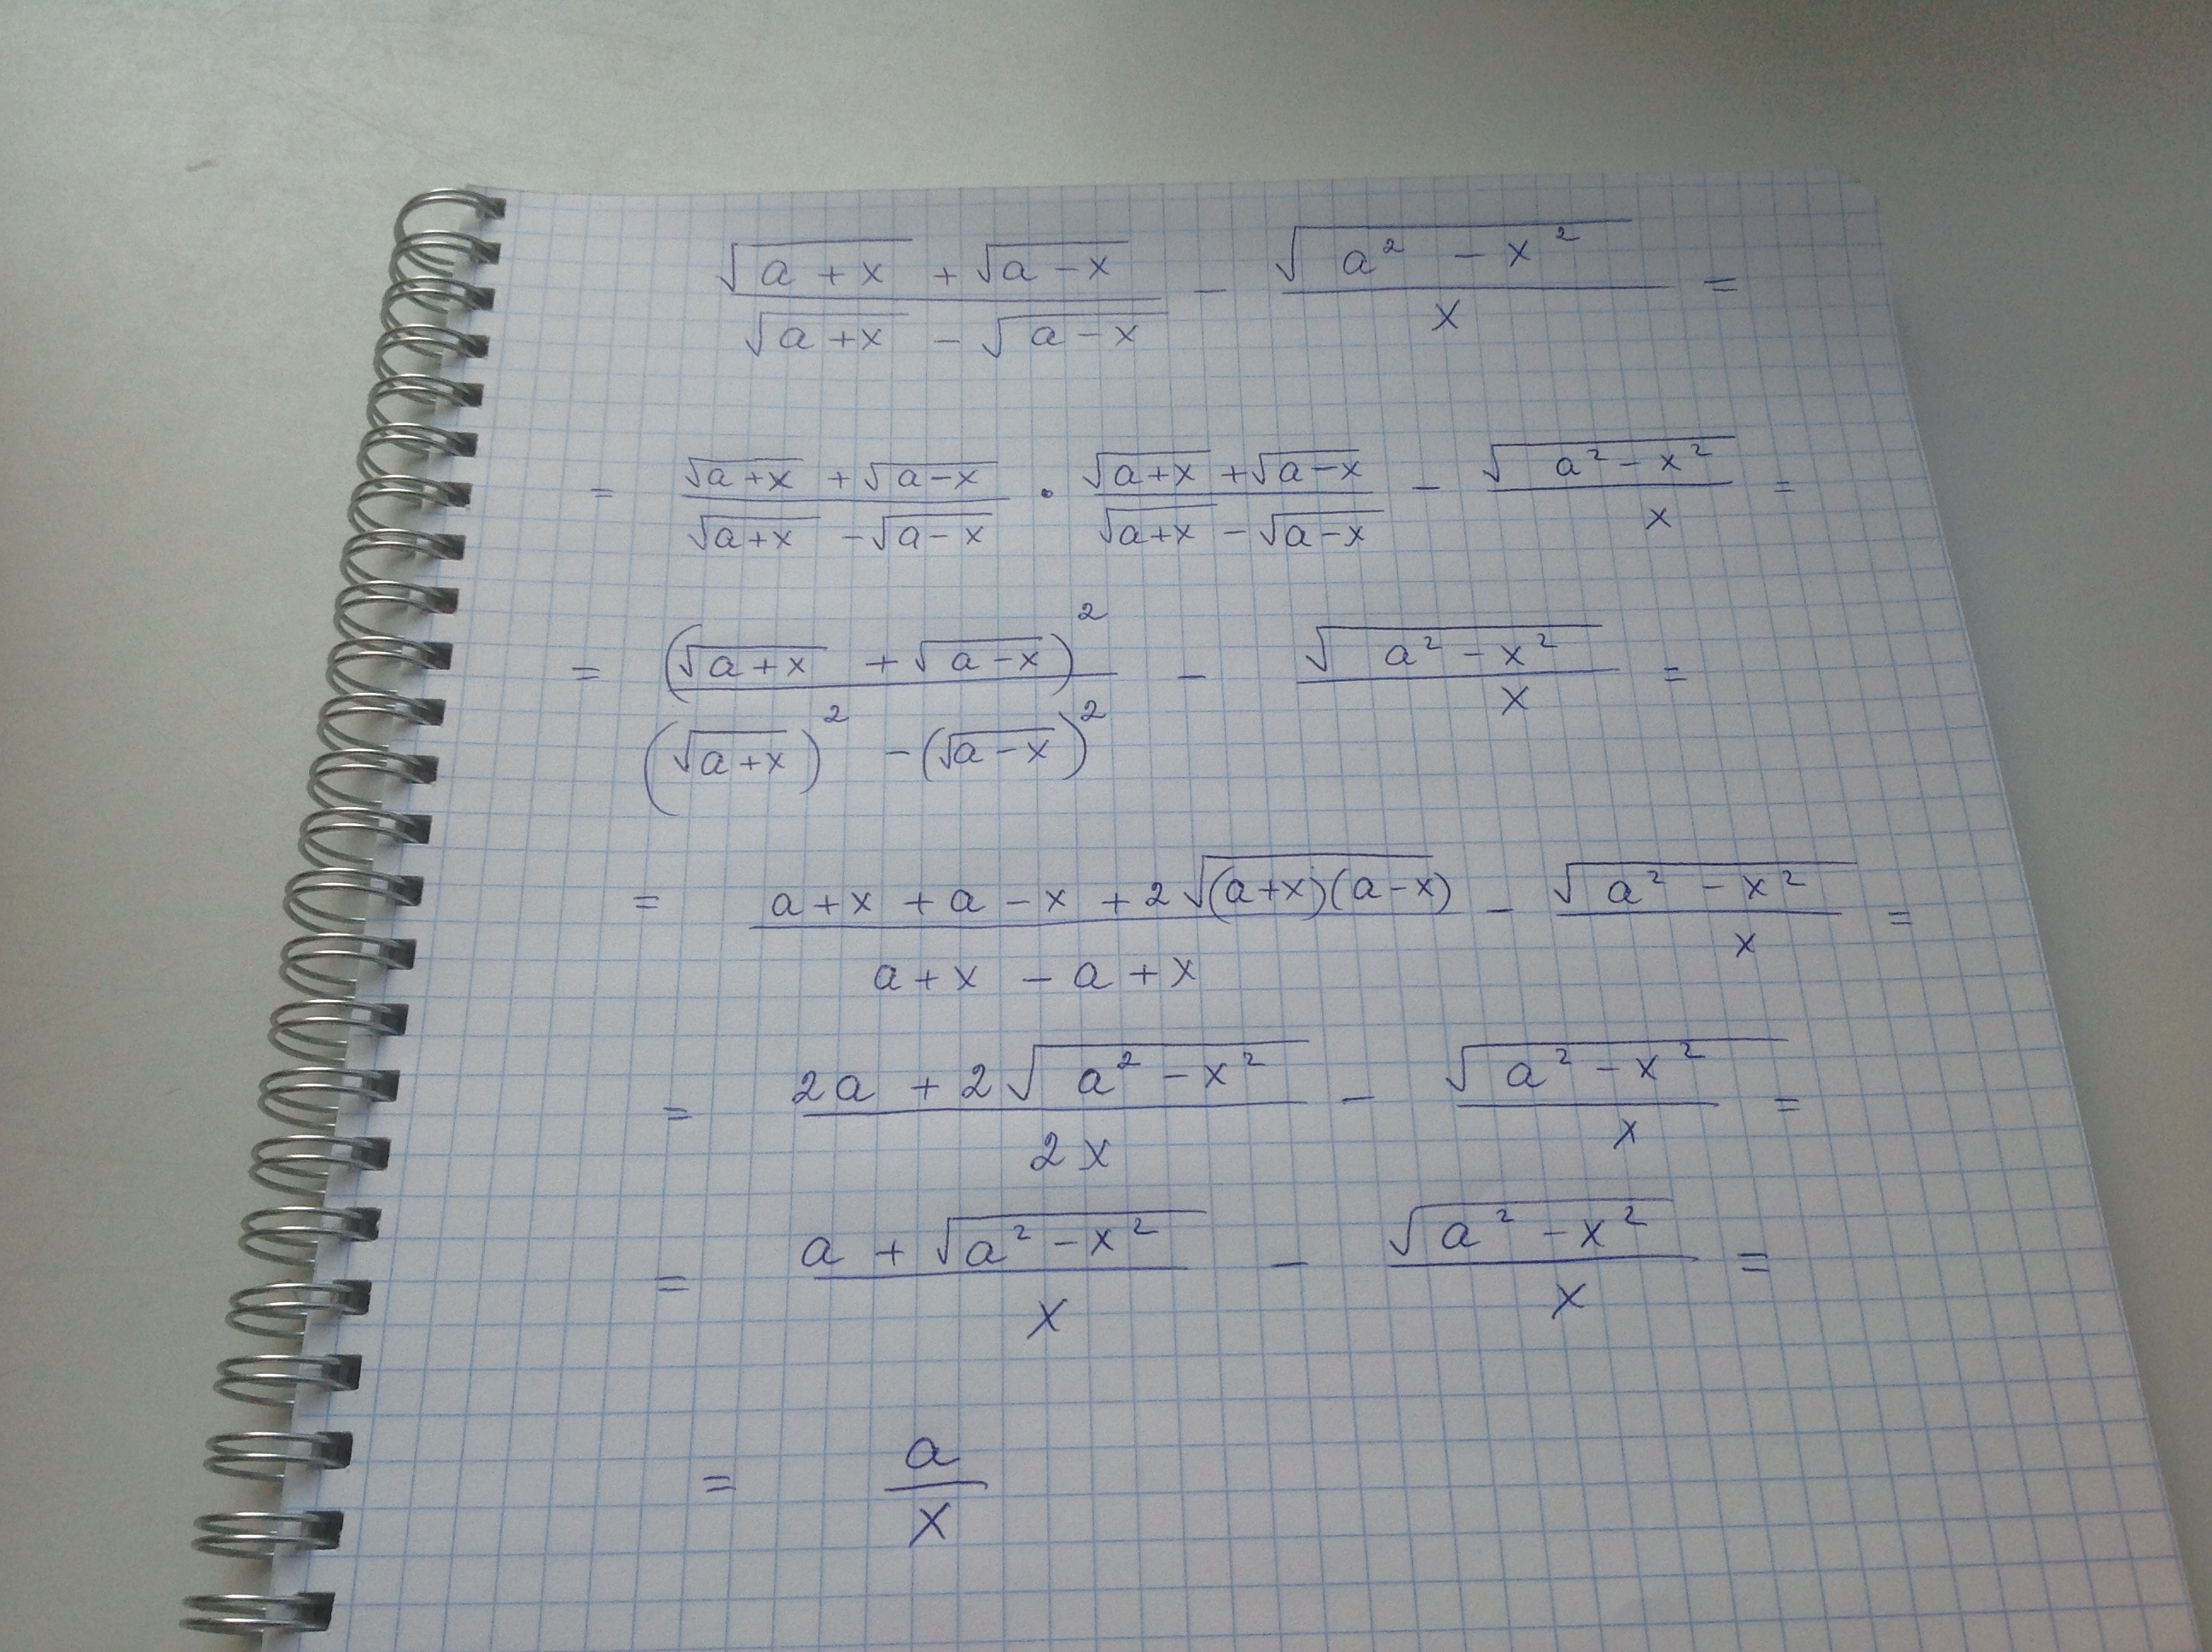 (√(a+x) + √(a-x)) / (√(a+x) - √(a-x)) - √(a² - x²) / x =
= (√(a+x) + √(a-x)) / (√(a+x) - √(a-x)) · (√(a+x) + √(a-x)) / (√(a+x) - √(a-x)) - √(a² - x²) / x =
= (√(a+x) + √(a-x))² / ((√(a+x))² - (√(a-x))²) - √(a² - x²) / x =
= (a+x + a-x + 2√((a+x)(a-x))) / (a+x - a+x) - √(a² - x²) / x =
= (2a + 2√(a² - x²)) / 2x - √(a² - x²) / x =
= (a + √(a² - x²)) / x - √(a² - x²) / x =
= a / x